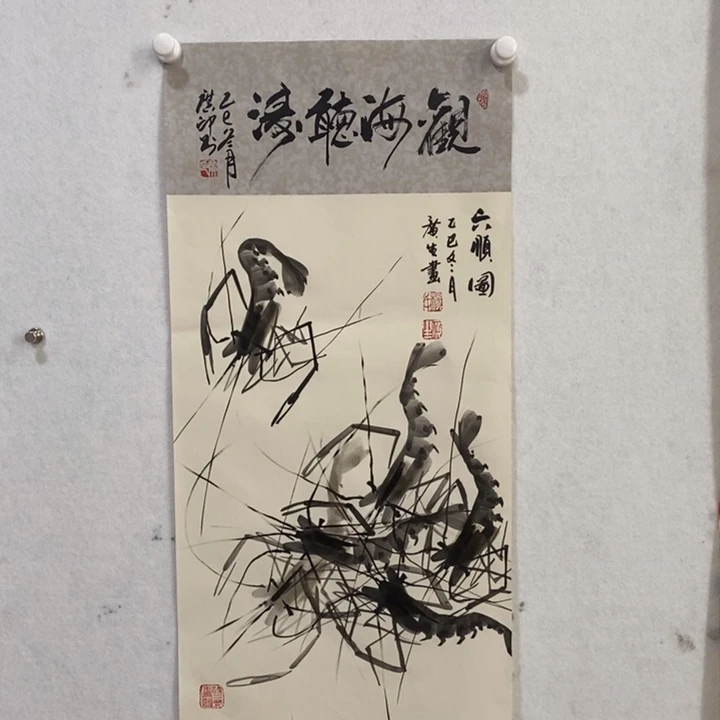 觀海聽濤
乙巳冬月
六順圖
乙巳冬月
廣生畫